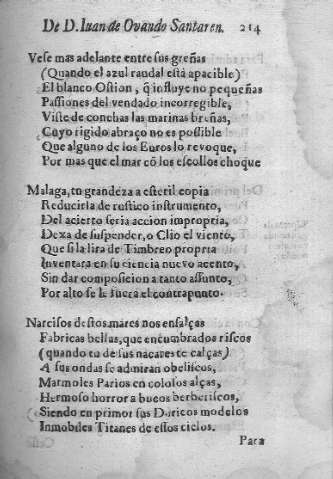 De D. Iuan de Ovando Santaren. 214
Vese mas adelante entre sus greñas
(Quando el azul raudal está apacible)
El blanco Ostion, q̃ influye no pequeñas
Passiones del vendado incorregible,
Viste de conchas las marinas breñas,
Cuyo rigido abraço no es possible
Que alguno de los Euros lo revoque,
Por mas que el mar cõ los escollos choque
Malaga, tu grandeza a esteril copia
Reducirla de rustico instrumento,
Del acierto seria accion impropria,
Dexa de suspender, o Clio el viento,
Que si la lira de Timbreo propria
Inventara en su ciencia nuevo acento,
Sin dar composicion a tanto assunto,
Por alto se le fuera el contrapunto.
Narcisos destos mares nos ensalças
Fabricas bellas, que encumbrados riscos
(quando tu de sus nacares te calças)
A sus ondas se admiran obeliscos,
Marmoles Parios en colosos alças,
Hermoso horror a bucos berberiscos,
Siendo en primor sus Doricos modelos
Inmobiles Titanes de essos cielos.
Para